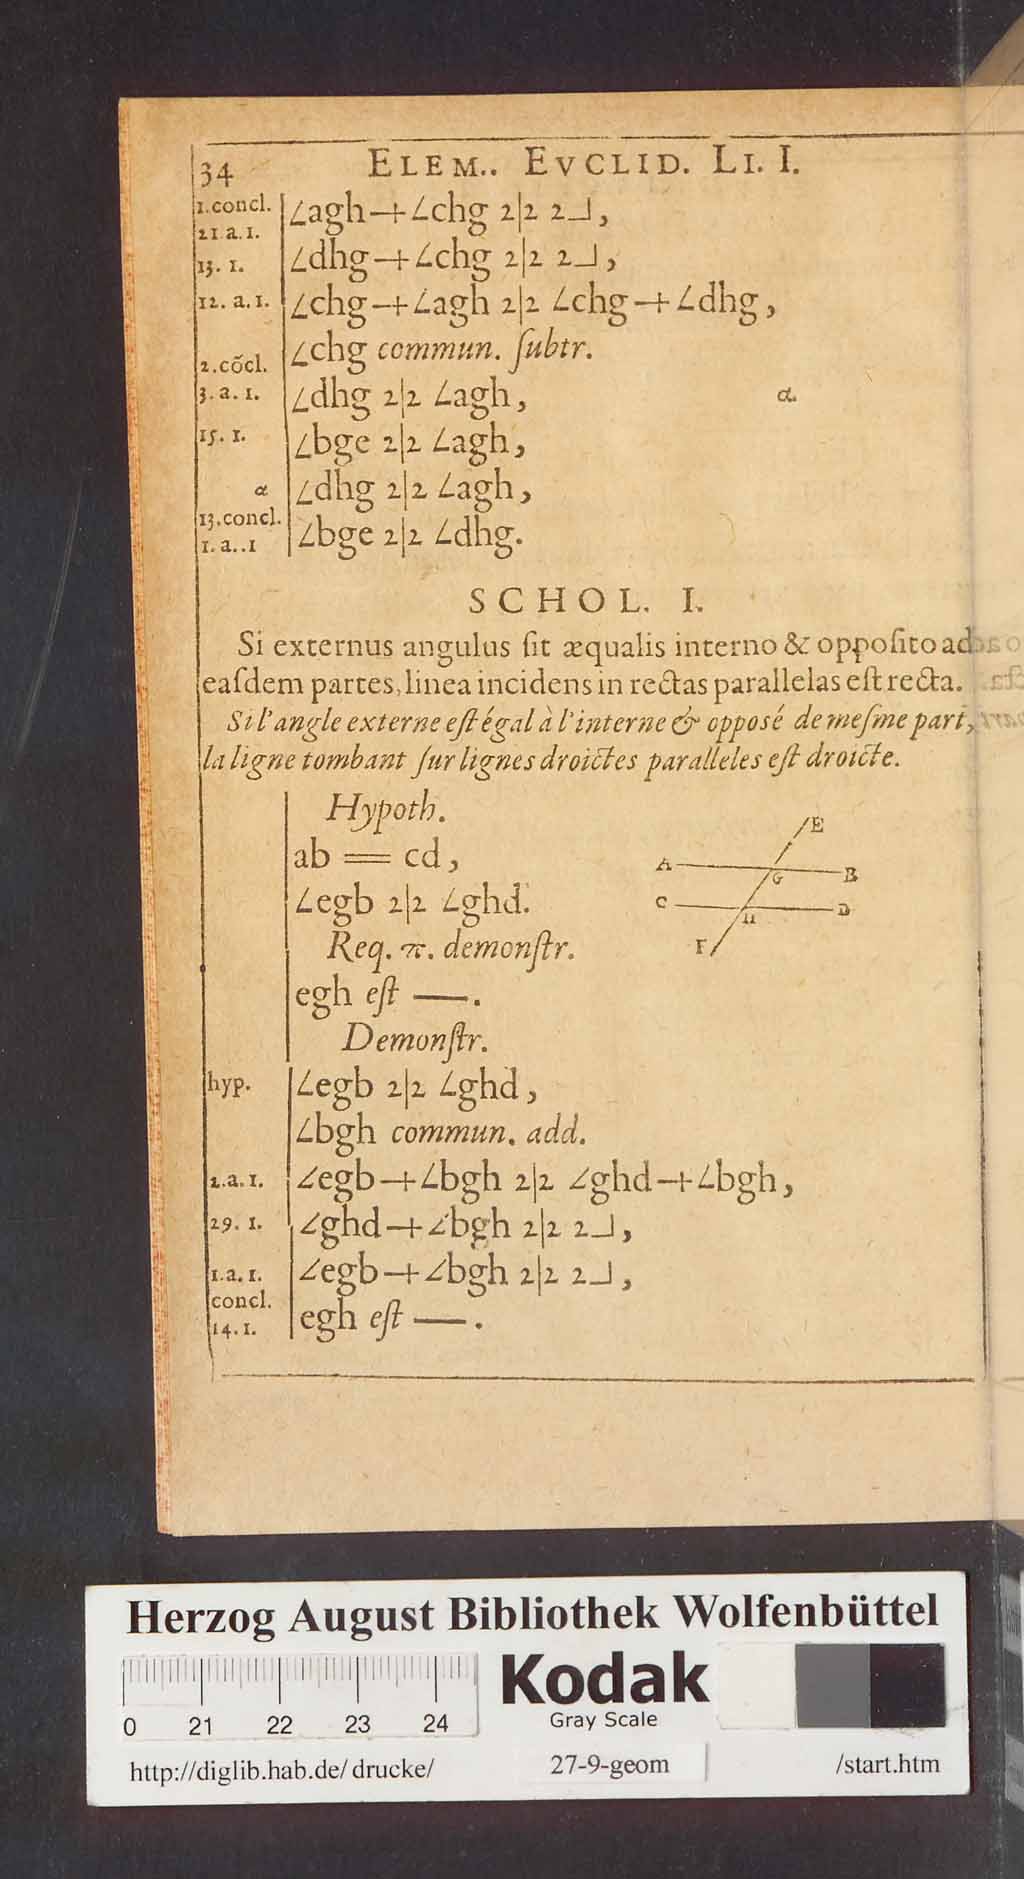 34 ELEM.. EVCLID. LI. I.
1.concl. ∠agh+∠chg 2|2 2⅃,
21 a. 1.
13. 1. ∠dhg+∠chg 2|2 2⅃,
12. a. 1. ∠chg+∠agh 2|2 ∠chg+∠dhg,
2.cõcl. ∠chg commun. ſubtr.
3. a. 1. ∠dhg 2|2 ∠agh, α.
15. 1. ∠bge 2|2 ∠agh,
α ∠dhg 2|2 ∠agh,
13.concl.
1. a..1 ∠bge 2|2 ∠dhg.
SCHOL. I.
Si externus angulus ſit æqualis interno & oppoſito ad
eaſdem partes, linea incidens in rectas parallelas eſt recta.
Si l'angle externe eſt égal à l'interne & opposé de meſme part,
la ligne tombant ſur lignes droictes paralleles eſt droicte.
Hypoth.
ab = cd,
∠egb 2|2 ∠ghd.
Req. π. demonſtr.
egh eſt —.
E
A G B
C H D
F
Demonſtr.
hyp. ∠egb 2|2 ∠ghd,
∠bgh commun. add.
2.a. 1. ∠egb+∠bgh 2|2 ∠ghd+∠bgh,
29. 1. ∠ghd+∠bgh 2|2 2⅃,
1.a. 1. ∠egb+∠bgh 2|2 2⅃,
concl.
14. 1. egh eſt —.
Herzog August Bibliothek Wolfenbüttel
0 21 22 23 24
Kodak
Gray Scale
http://diglib.hab.de/drucke/ 27-9-geom /start.htm